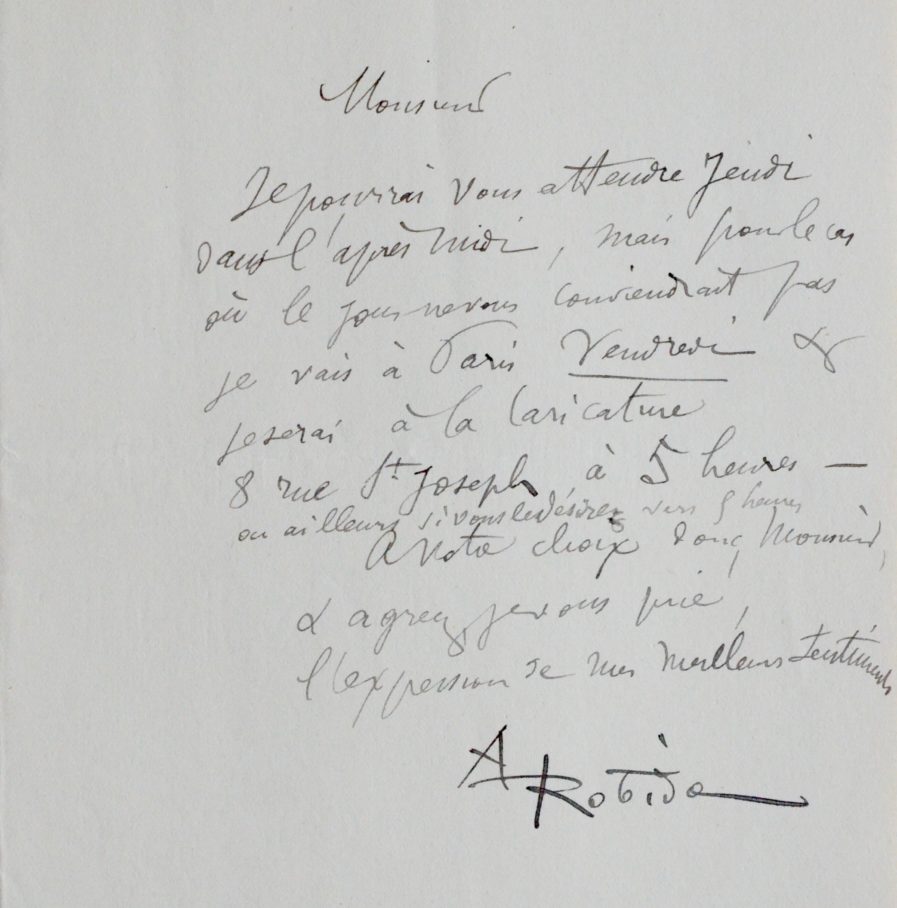 Monsieur
Je pourrai vous attendre Jeudi
dans l'après midi, mais pour le cas
où le jour ne vous conviendrait pas
je vais à Paris Vendredi &
je serai à la Caricature
8 rue St. Joseph à 5 heures —
ou ailleurs si vous le désirez vers 5 heures
A votre choix donc, Monsieur,
& agréez, je vous prie,
l'expression de mes meilleurs sentiments
A Robida